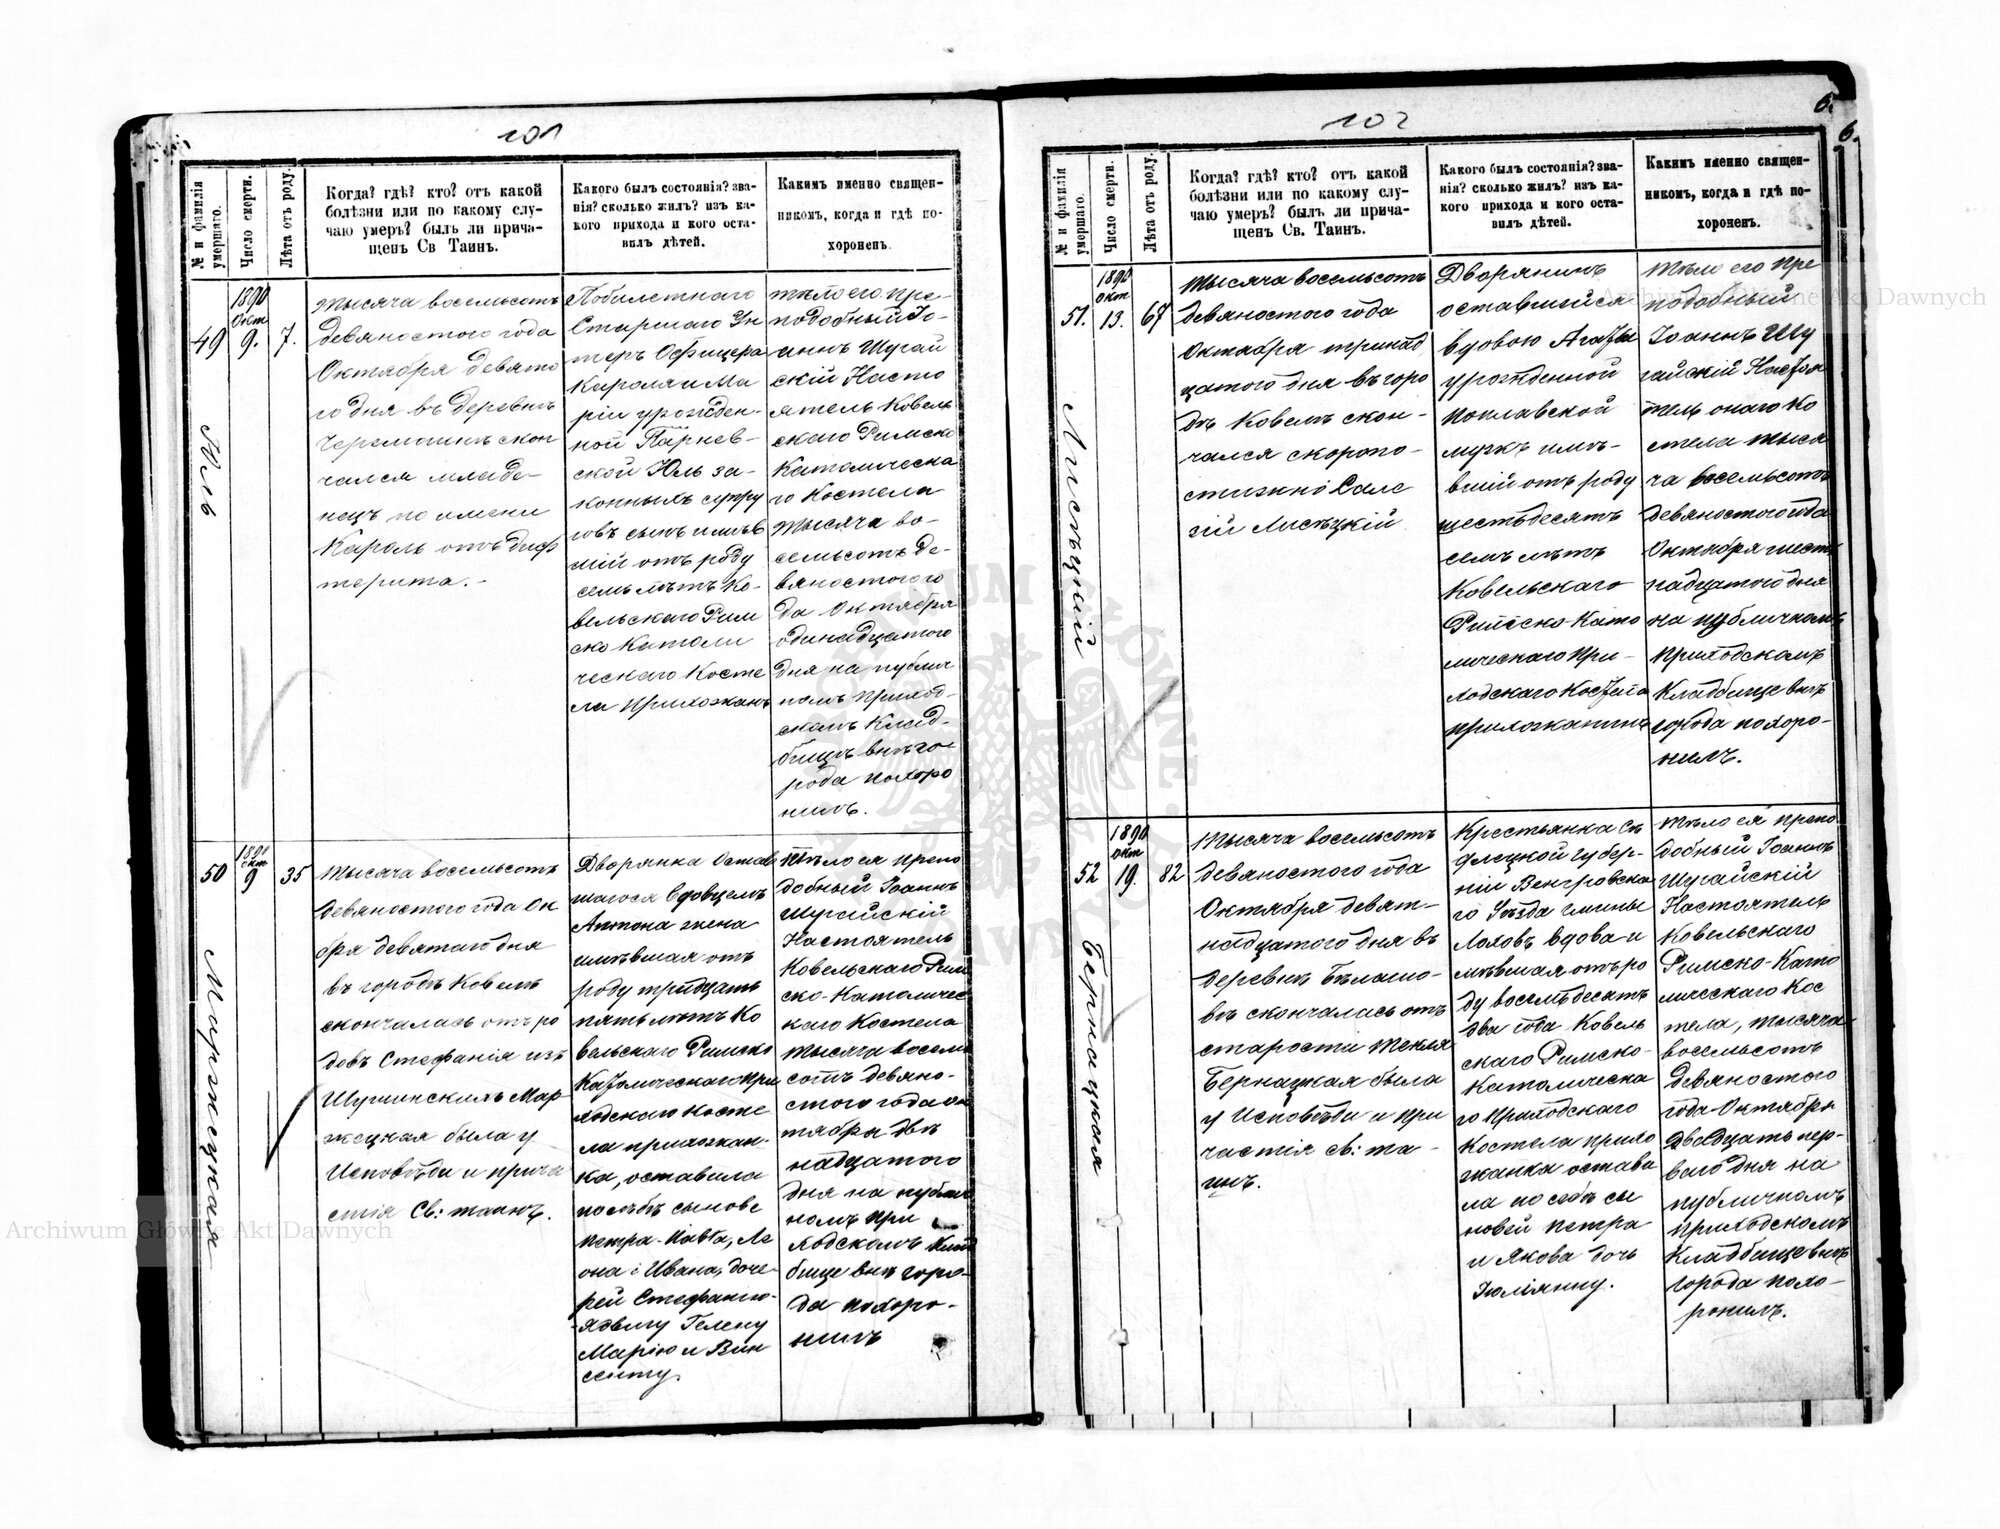 101
№ и фамилія умершаго.
Число смерти.
Лѣта отъ роду.
Когда? гдѣ? кто? отъ какой
болѣзни или по какому слу-
чаю умеръ? былъ ли прича-
щенъ Св Таинъ.
Какого былъ состоянія? зва-
нія? сколько жилъ? изъ ка-
кого прихода и кого оста-
вилъ дѣтей.
Какимъ именно священ-
никомъ, когда и гдѣ по-
хороненъ.
49
Юль
1890
Окт
9.
7.
тысяча восемьсотъ
девяностого года
Октября девято
го дня въ деревнѣ
Черемошнѣ скон
чался младе-
нецъ по имени
Кароль отъ диф
терита. -
Побилетнаго
Старшаго Ун
теръ Офицера
Кароля и Ма
ріи урожден-
ной
ской Юль за-
конныхъ супру
говъ сынъ имѣв
шій отъ роду
семь лѣтъ Ко-
вельскаго Рим
ско Католи
ческаго Косте
ла Прихожанъ
тѣло его пре-
подобный Іо-
аннъ Шугай
скій Насто
ятель Ковель
скаго Римско
Католическа
го Костела
тысяча во-
семьсотъ де-
вяностого го
да Октября
одинадцатого
дня на публич
номъ Приход-
скомъ Клад-
бищѣ внѣ го-
рода похоро
нилъ.
50
Маржецкая
1890
окт
9
35
тысяча восемьсотъ
девяностого года Ок
бря девятаго дня
въ городѣ Ковелѣ
скончалась отъ ро
довъ Стефанія изъ
Шуминскихъ Мар
жецкая была у
Исповѣди и прича
стія Св: таинъ.
Дворянка Остав
шагося вдовцемъ
Антона жена
имѣвшая отъ
роду тридцать
пять лѣтъ Ко
вельскаго Римско
Католическаго при
ходскаго косте
ла прихожан-
ка, оставила
послѣ сынове
Петра-Павла, Ле
она і Ивана, доче-
рей Стефанію-
Ядвигу Гелену
Марію и Вин
сенту.
Тѣло ея препо
добный Іоаннъ
Шугайскій
Настоятель
Ковельскаго Рим
ско-Католичес
каго Костела
тысяча восемь
сотъ девяно-
стого года ок
тября двѣ
надцатого
дня на публич
номъ При
ходскомъ Клад
бище внѣ горо-
да похоро-
нилъ
102
6.
6.
№ и фамилія умершаго.
Число смерти.
Лѣта отъ роду.
Когда? гдѣ? кто? отъ какой
болѣзни или по какому слу-
чаю умеръ? былъ ли прича-
щенъ Св. Таинъ.
Какого былъ состоянія? зва-
нія? сколько жилъ? изъ ка-
кого прихода и кого оста-
вилъ дѣтей.
Какимъ именно священ-
никомъ, когда и гдѣ по-
хороненъ.
51.
Лисѣцкій
1890
окт
13.
67
тысяча восемьсотъ
девяностого года
Октября тринад
цатого дня въ горо
дѣ Ковелѣ скон-
чался скоропо-
стижно
Лисѣцкій
Дворянинъ
оставшейся
вдовою Агафіи
урожденной
Поплавской
мужъ имѣ-
вшій отъ роду
шестьдесятъ
семь лѣтъ
Ковельскаго
Римско Като
лическаго При-
ходскаго Костела
прихожанинъ
тѣло его Пре
подобный
Іоаннъ Шу
гайскій Настоя
тель онаго Ко
стела тыся
ча восемьсотъ
девяностого года
Октября шест
надцатого дня
на публичномъ
Приходскомъ
Кладбище внѣ
города похоро-
нилъ.
52
Бернацкая
1890
окт
19.
82
тысяча восемьсотъ
девяностого года
Октября девят-
надцатого дня въ
деревнѣ Бѣлашо-
вѣ скончалась отъ
старости Текля
Бернацкая была
у Исповѣди и при
частія св: та-
инъ.
Крестьянка Сѣ
длецкой губер-
ніи Венгровска
го Уѣзда гмины
Лоховъ вдова и
мѣвшая отъ ро
ду восемьдесятъ
два года Ковель
скаго Римско-
Католическа
го Приходского
Костела прихо
жанка остава
ла по себѣ сы
новей Петра
и Якова дочь
Юліянну.
тѣло ея препо
добный Іоаннъ
Шугайскій
Настоятель
Ковельскаго
Римско-Като
лическаго Кос
тела, тысяча
восемьсотъ
девяностого
года Октября
двадцать пер-
ваго дня на
публичномъ
приходскомъ
Кладбище внѣ
города похо-
ронилъ.
Archiwum Główne Akt Dawnych
Archiwum Główne Akt Dawnych
ARCHIWUM GŁÓWNE AKT DAWNYCH